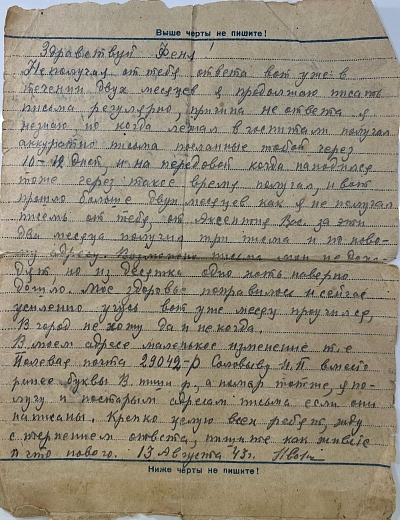 Выше черты не пишите!
Здравствуй Феня!
Не получая от тебя ответа вот уже в
течении двух месяцев я продолжаю писать
письма регулярно, причина не ответа я
незнаю но когда лежал в госпитали получал
аккуратно письма посланные тобой через
10-12 дней, и на передовой когда находился
тоже через такое время получал, и вот
прошло больше двух месяцев как я не получал
писем от тебя, от Аксентия Вас. за эти
два месяца получил три письма и по ново-
му адресу. Возможно письма мои не дохо-
дят но из десятка одно хоть наверно
дошло. Мое здоровье поправилось и сейчас
усиленно учусь вот уже месяц проучился,
В город не хожу да и некогда.
В моем адресе маленькое изменение т.е
Полевая почта 29042-Р Соловьеву Н.П вместо
ранее буквы В пиши р, а номер тотже, я по-
лучу и постарым адресам письма если они
написаны. Крепко целую всех ребят, жду
с терпением ответа, пишите как живете
и что нового. 13 Августа 43г.
Ниже черты не пишите!